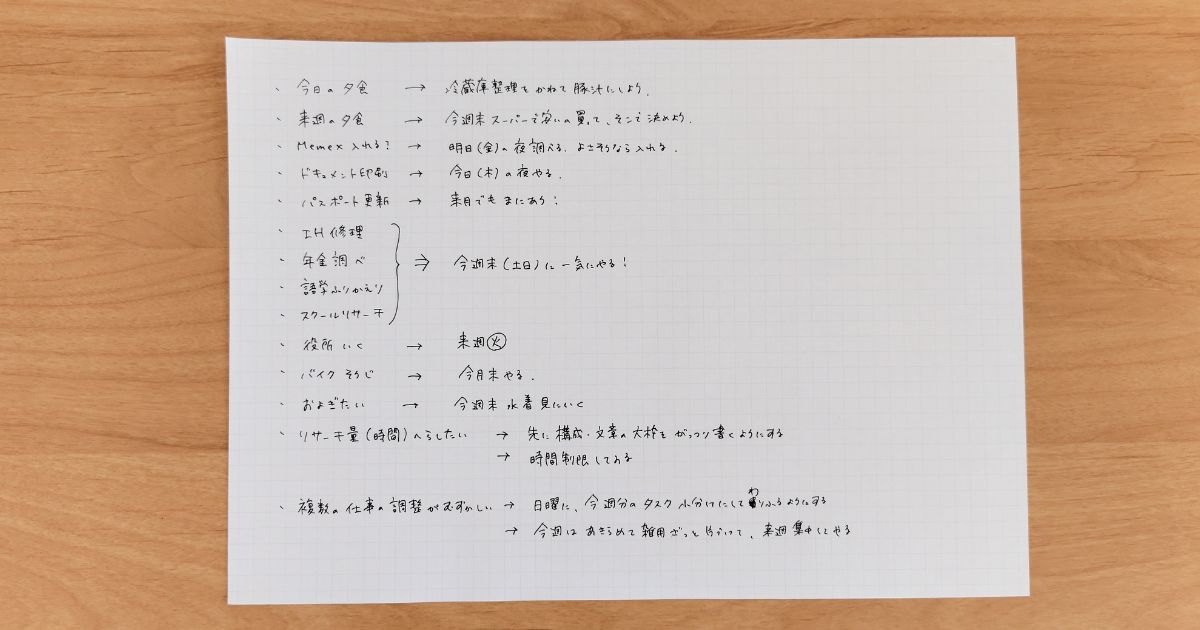 ・ 今日の夕食 → 冷蔵庫整理をかねて豚汁にしよう.
・ 来週の夕食 → 今週末スーパーで安いの買って、そこで決めよう.
・ Memex 入れる? → 明日(金)の夜調べる. よさそうなら入れる.
・ ドキュメント印刷 → 今日(木)の夜やる.
・ パスポート更新 → 来月でもまにあう!
・ IH修理
・ 年金調べ
・ 語学ふりかえり ⇒ 今週末(土日)に一気にやる!
・ スクールリサーチ
・ 役所いく → 来週火
・ バイクそうじ → 今月末やる.
・ およぎたい → 今週末 水着見にいく
・ リサーチ量(時間)へらしたい → 先に構成・文章の大枠をがっつり書くようにする
→ 時間制限してみる
・ 複数の仕事の調整がむずかしい → 日曜に、今週分のタスク小分けにしてわりふるようにする
→ 今週はあきらめて雑用ざっと片づけて、来週集中してやる